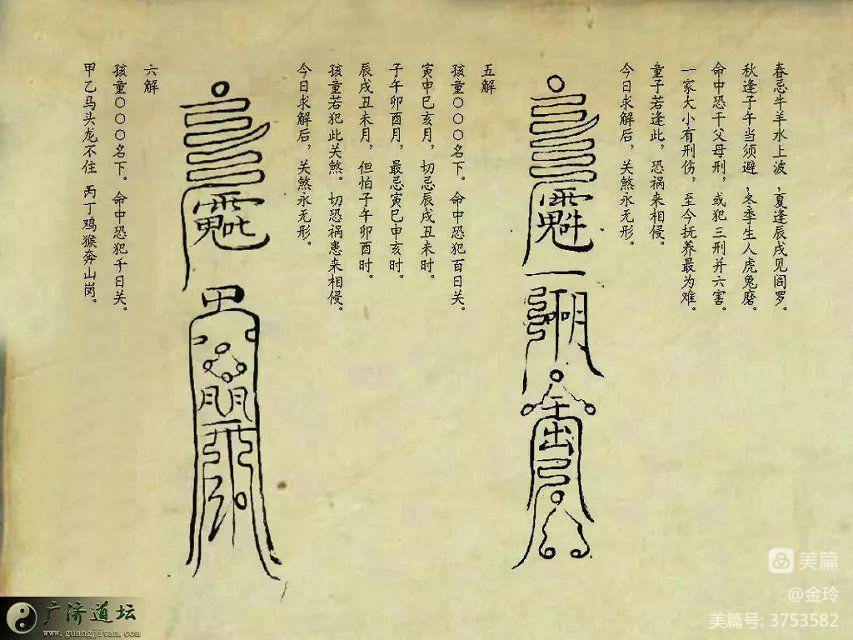 春忌牛羊水上波,夏逢辰戌见阎罗。
秋逢子午当须避,冬季生人虎兔磨。
命中恐干父母刑,或犯三刑并六害。
一家大小有刑伤,至今抚养最为难。
童子若逢此,恐祸来相侵。
今日求解后,关煞永无形。
五解
孩童〇〇〇名下。命中恐犯百日关。
寅申巳亥月,切忌辰戌丑未时。
子午卯酉月,最忌寅巳申亥时。
辰戌丑未月,但怕子午卯酉时。
孩童若犯此关煞。切恐祸患来相侵。
今日求解后,关煞永无形。
六解
孩童〇〇〇名下。命中恐犯千日关。
甲乙马头龙不住 丙丁鸡猴奔山岗。
美篇
@金玲
美篇号: 3753582
广济道坛
www.guangjitan.com